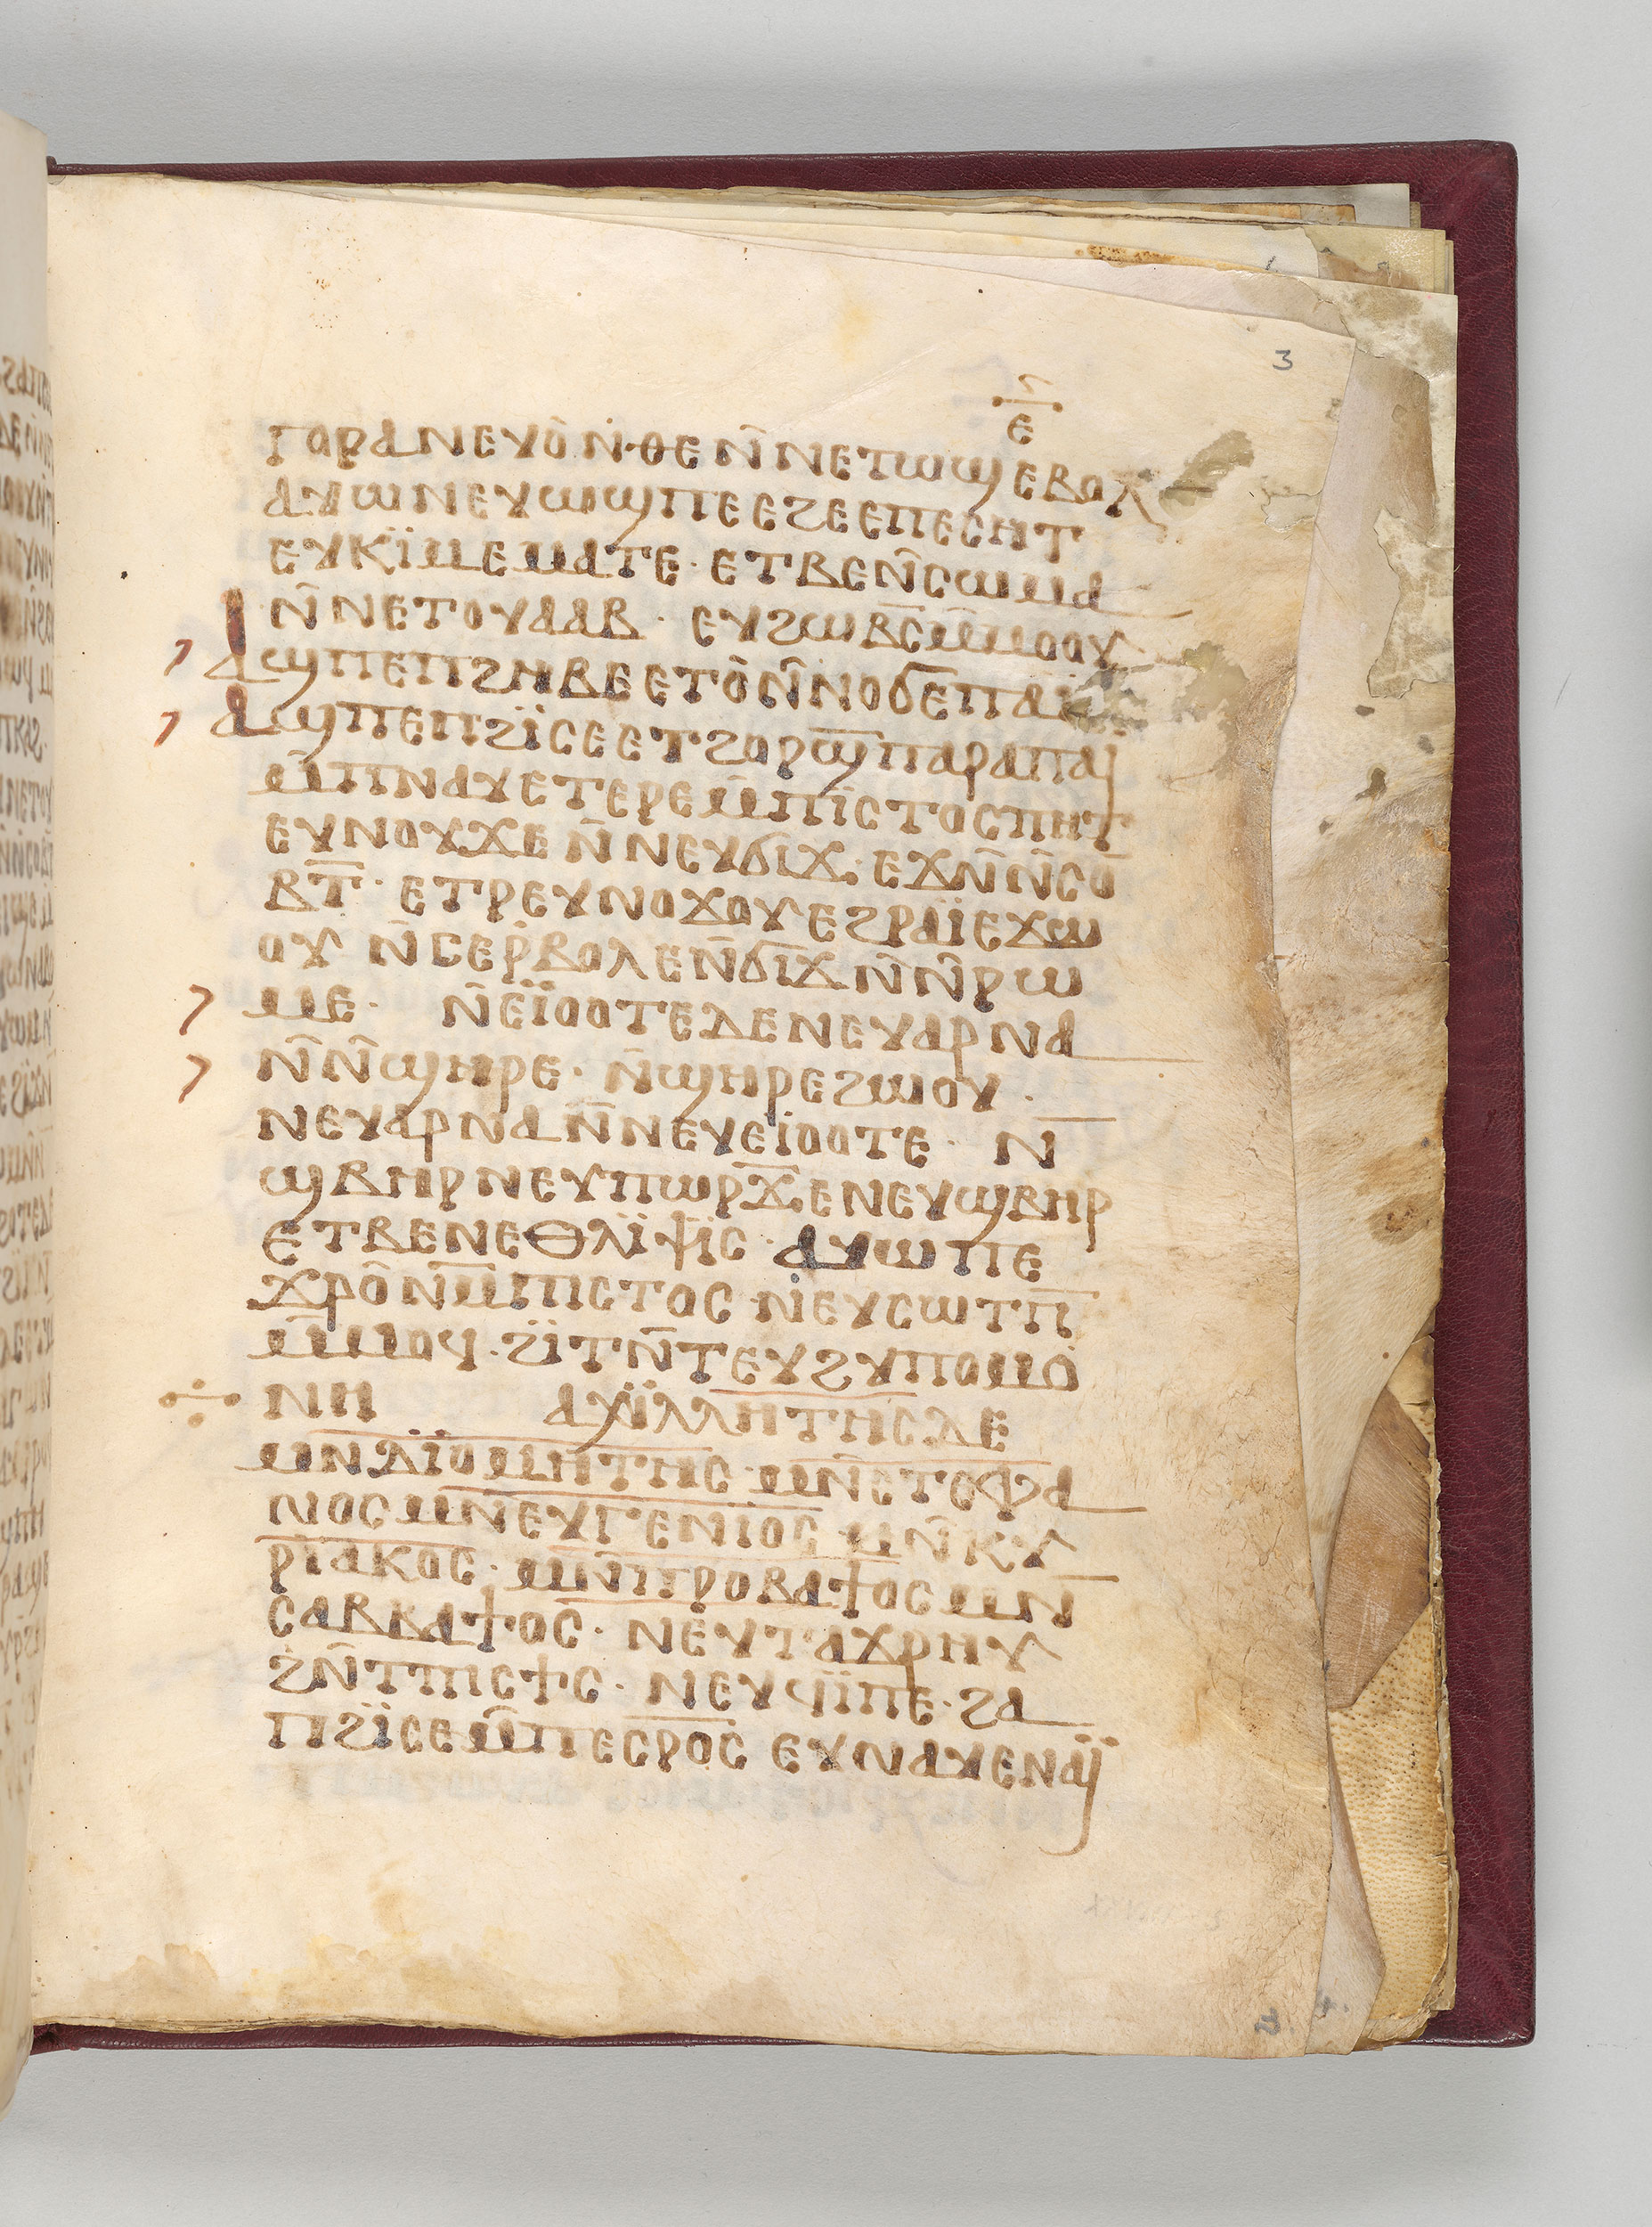 3
ⲉ
ⲅⲟⲣⲁ ⲛⲉⲩⲟ̀ ⲛ̀ⲑⲉ ⲛ̄ⲛⲉⲧⲱϣ ⲉⲃⲟⲗ
ⲁⲩⲱ ⲛⲉⲩⲱϣⲡⲉ ⲉϩⲉ ⲉⲡⲉⲥⲏⲧ
ⲉⲩⲕⲓ̈ⲙ ⲉⲙⲁⲧⲉ · ⲉⲧⲃⲉ ⲛ̄ⲥⲱⲙⲁ
ⲛ̄ⲛⲉⲧⲟⲩⲁⲁⲃ · ⲉⲩϩⲱⲃ̄ⲥ̄ ⲙ̄ⲙⲟⲟⲩ
ⲁϣ ⲡⲉ ⲡϩⲏⲃⲉ ⲉⲧⲟ̀ ⲛ̄ⲛⲟϭ ⲉⲡⲁⲓ̈
ⲁϣ ⲡⲉ ⲡϩⲓ̈ⲥⲉ ⲉⲧϩⲟⲣϣ̄ ⲡⲁⲣⲁ ⲡⲁⲓ
ⲙ̄ⲡⲛⲁⲩ ⲉⲧⲉⲣⲉ ⲙ̄ⲡⲓⲥⲧⲟⲥ ⲡⲏⲧ
ⲉⲩⲛⲟⲩϫⲉ ⲛ̄ⲛⲉⲩϭⲓϫ · ⲉϫⲛ̄ ⲛ̄ⲥⲟ̄
ⲃⲧ̄ · ⲉⲧⲣⲉⲩⲛⲟϫⲟⲩ ⲉϩⲣⲁⲓ̈ ⲉϫⲱ
ⲟⲩ ⲛ̄ⲥⲉⲣ̄ⲃⲟⲗ ⲉⲛ̄ϭⲓϫ ⲛ̄ⲛ̄ⲣⲱ
ⲙⲉ · ⲛ̄ⲉⲓ̈ⲟⲟⲧⲉ ⲇⲉ ⲛⲉⲩⲁⲣⲛⲁ
ⲛ̄ⲛ̄ϣⲏⲣⲉ · ⲛ̄ϣⲏⲣⲉ ϩⲱⲟⲩ ·
ⲛⲉⲩⲁⲣⲛⲁ ⲛ̄ⲛⲉⲩⲉⲓⲟⲟⲧⲉ · ⲛ̄
ϣⲃⲏⲣ ⲛⲉⲩⲡⲱⲣϫ̄ ⲉⲛⲉⲩϣⲃⲏⲣ
ⲉⲧⲃⲉ ⲛⲉⲑⲗⲓ̈ⲯⲓ̈ⲥ · ⲁⲩⲱ ⲡⲉ
ⲭⲣⲟ̂ⲛ ⲙ̄ⲡⲓⲥⲧⲟⲥ · ⲛⲉⲩⲥⲱⲧⲡ̄
ⲙ̄ⲙⲟϥ · ϩⲓ̈ⲧⲛ̄ ⲧⲉⲩϩⲩⲡⲟⲙⲟ
ⲛⲏ ⲁⲭⲓ̈ⲗⲗⲏⲧⲏⲥ ⲇⲉ
ⲙⲛ ⲇⲓ̈ⲟⲙⲏⲧⲏⲥ · ⲙⲛ̄ ⲥⲧⲉⲫⲁ
ⲛⲟⲥ ⲙⲛ ⲉⲩⲅⲉⲛⲓ̈ⲟⲥ · ⲙⲛ̄ ⲕⲩ
ⲣⲓⲁⲕⲟⲥ · ⲙⲛ̄ ⲡⲣⲟⲃⲁϯⲟⲥ ⲙⲛ̄
ⲥⲁⲃⲃⲁϯⲟⲥ · ⲛⲉⲩⲧⲁϫⲣⲏⲩ
ϩⲛ̄ ⲧⲡⲓⲥϯⲥ · ⲛⲉⲩϥⲓ̈ ⲡⲉ · ϩⲁ
ⲡϩⲓ̈ⲥⲉ ⲙ̄ⲡⲉⲥⲣⲟⲥ ⲉⲩⲛⲁⲩ ⲉⲛⲁⲓ̈